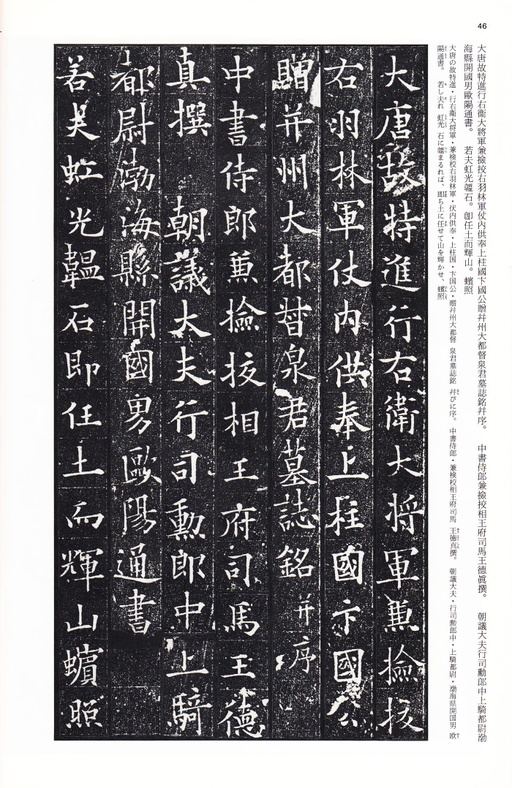 46
大唐故特進行右衞大將軍兼撿挍右羽林軍仗内供奉上柱國卞國公贈幷州大都督泉君墓誌銘幷序。　中書侍郎兼撿挍相王府司馬王德眞撰。　朝議大夫行司勳郎中上騎都尉渤
海縣開國男歐陽通書。　若夫虹光韞石。卽任土而輝山。蠙照
大唐の故特進・行右衞大将軍・兼検校右羽林軍・仗内供奉・上柱国・卞国公・贈幷州大都督　泉君墓誌銘　幷びに序。　中書侍郎・兼検校相王府司馬　王徳真撰。　朝議大夫・行司勳郎中・上騎都尉・渤海県開国男　欧
陽通書。　若し夫れ　虹光　石に韞まるれば、即ち土に任せて山を輝かせ、蠙照
大唐故特進行右衛大將軍兼撿挍
右羽林軍仗内供奉上柱國卞國公
贈并州大都督泉君墓誌銘并序
中書侍郎兼撿挍相王府司馬王德
真撰　朝議大夫行司勳郎中上騎
都尉渤海縣開國男歐陽通書
若夫虹光韞石即任土而輝山蠙照